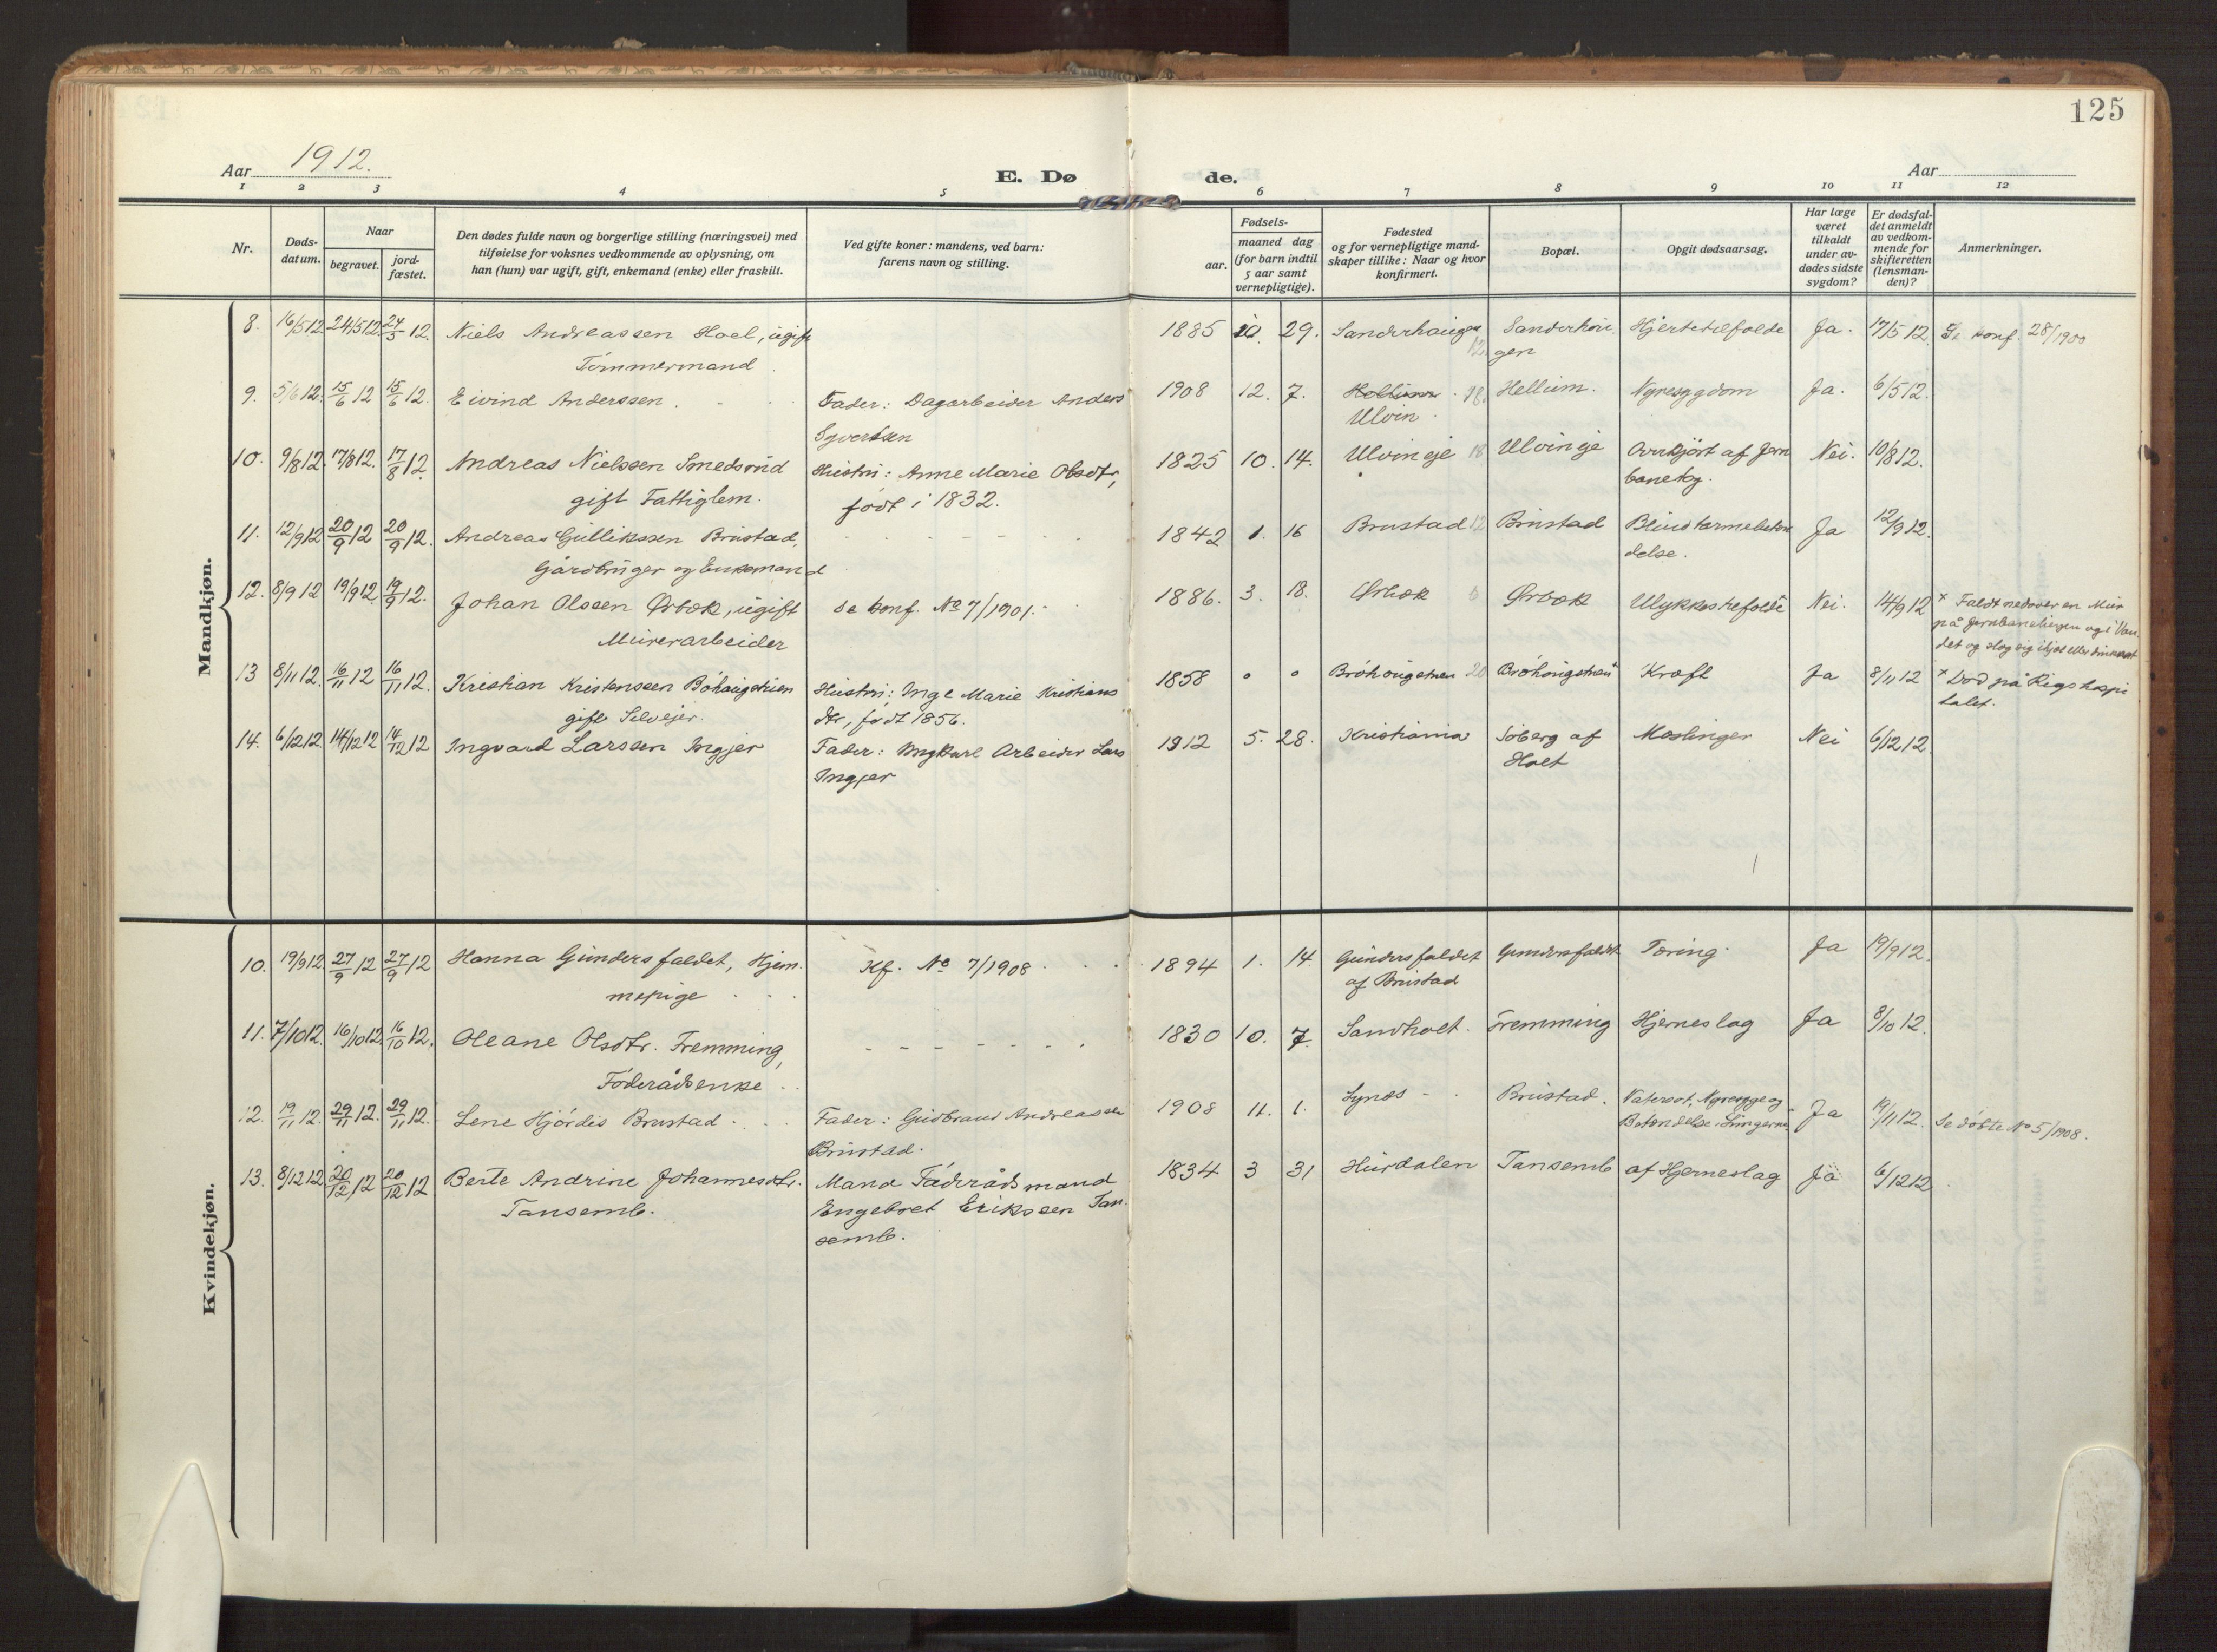 125
Aar 1912.
E. Dø de.
Aar
1 2 3 4 5 6 7 8 9 10 11 12
Nr.
Døds-
datum.
Naar
begravet.
jord-
fæstet.
Den dødes fulde navn og borgerlige stilling (næringsvei) med
tilføielse for voksnes vedkommende av oplysning, om
han (hun) var ugift, gift, enkemand (enke) eller fraskilt.
Ved gifte koner: mandens, ved barn:
farens navn og stilling.
Fødsels-
aar.
maaned dag
(for barn indtil
5 aar samt
vernepligtige).
Fødested
og for vernepligtige mand-
skaper tillike: Naar og hvor
konfirmert.
Bopæl.
Opgit dødsaarsag.
Har læge
været
tilkaldt
under av-
dødes sidste
sygdom?
Er dødsfal-
det anmeldt
av vedkom-
mende for
skifteretten
(lensman-
den)?
Anmerkninger.
Mandkjøn.
8. 16/5 12 24/5 12 24/5 12. Niels Andreassen Hoel, ugift 1885 10. 29. Sanderhaugen Sanderhau- Hjertetilfælde Ja. 17/5 12. Se konf. 28/1900
Tømmermand. 12. gen
9. 5/6 12. 15/6 12 15/6 12. Eivind Anderssen. Fader: Dagarbeider Anders 1908 12. 7. Hellum. 18. Hellum. Nyresygdom Ja. 6/5 12.
Syvertsen Ulvin.
10. 9/8 12. 17/8 12. 17/8 12. Andreas Nielssen Smedsrud Hustru: Anne Marie Olsdtr, 1825 10. 14. Ulvin eje 18 Ulvin eje Overkjørt af Jern Nei. 10/8 12.
gift Fattiglem. født i 1832. banetog.
11. 12/9 12 20/9 12 20/9 12. Andreas Gullikssen Brustad, 1842 1. 16 Brustad 12 Brustad Blindtarmsbetæn Ja 12/9 12.
Gårdbruger og Enkemand delse.
12. 8/9 12 19/9 12. 19/9 12. Johan Olssen Ørbæk, ugift Se konf. No 7/1901. 1886. 3. 18. Ørbæk Ørbæk Ulykkestilfælde Nei. 14/9 12 x Faldt nedover en Mur
Murerarbeider på Jernbanelinjen og i Van-
det og slog sig ihjel eller druknet
13 8/11 12. 16/11 12 16/11 12. Kristian Kristenssen Bøhaugstuen Hustru: Inge Marie Kristians 1858 " " Brøhaugstuen 20 Brøhaugstuen Kræft Ja 8/11 12 x Død på Rigshospi
gift Selvejer. dtr, født 1856. talet.
14. 6/12 12. 14/12 12 14/12 12 Ingvard Larssen Ingjer Fader: Ungkarl Arbeider Lars 1912 5. 28. Kristiania Søberg af Meslinger Nei 6/12 12.
Ingjer Holt
Kvindekjøn.
10. 19/9 12. 27/9 12 27/9 12 Hanna Gundersfaldet, Hjem- Kf. No 7/1908 1894 1. 14. Gundersfaldet Gundersfaldet Tæring. Ja 19/9 12.
mepige af Brustad
11. 7/10 12. 16/10 12. 16/10 12. Oleane Olsdtr. Fremming, 1830 10. 7. Sandholt. Fremming Hjerneslag Ja 8/10 12.
Føderådsenke
12. 19/11 12. 29/11 12. 29/11 12. Lene Hjørdis Brustad Fader: Gudbrand Andreassen 1908 11. 1. Synes Brustad. Vatersot, Nyresyge og Ja 19/11 12. Se døbte No 5/1908.
Brustad. Betændelse i Lungerne
13. 8/12 12 20/12 12 20/12 12 Berte Andrine Johannesdtr. Mand Føderådsmand 1834 3 31 Hurdalen Tansemb af Hjerneslag Ja 6/12 12
Tansemb. Engebret Erikssen Tan-
semb.